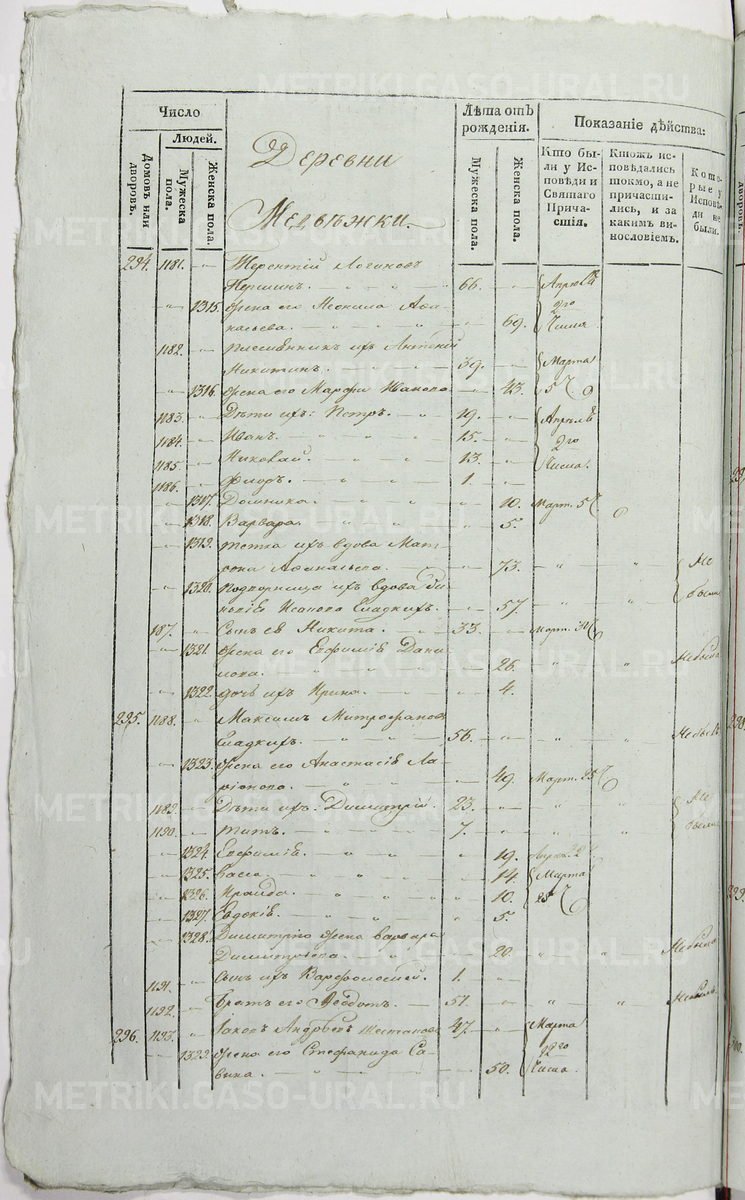 METRIKI.GASO-URAL.RU
Число
Людей.
Домовъ или дворовъ.
Мужеска пола.
Женска пола.
Деревни
Медвѣжки.
Лѣта отъ рожденія.
Мужеска пола.
Женска пола.
Показаніе дѣйства:
Кто были у Исповѣди и Святаго Причастія.
Ктожъ исповѣдались токмо, а не причастились, и за какимъ винословіемъ.
Которые у Исповѣди не были.
294. 1181. Терентій Логиновъ
66. Апрѣля
1315. жена его Неонила Афа-
насьева. 69. 2го Числа
1182. племянникъ ихъ
Никитинъ. 39. Марта
1316. жена его Марфа Иванова 43. 5
1183. Дѣти ихъ: Петръ. 19. Апрѣля
1184. Иванъ. 15. 2го
1185. Николай. 13. Числа.
1186. Ѳедоръ. 1.
1317. Домника. 10. Март. 5
1318. Варвара. 5.
1319. тетка ихъ вдова Мат-
рона Афанасьева. 73. Не
1320. Подворница ихъ вдова
Сладкихъ. 57. были
187. Сынъ ея Никита. 33. Март. 30
1321. жена его Евфимія Дани-
лова. 26. Небыла
1322. дочь ихъ Ирина. 4.
295. 1188. Максимъ Митрофановъ
Сладкихъ. 56. Небылъ
1323. жена его Анастасія Ла-
ріонова. 49. Март. 25
1189. Дѣти ихъ: Димитрій. 23. Не
1190. Титъ. 7. были
1324. Евфимія. 19. Апрѣ. 2
1325. Васса. 14. Марта
1326. Ираида. 10. 25
1327. Евдокія. 5.
1328. Димитрія жена Варвара
Димитріева. 20. Небыла
1191. Сынъ ихъ Варфоломей. 1.
1192. Братъ его Ѳеодотъ. 51. Небылъ
296. 1193. Іаковъ Андреевъ Шестаковъ 47. Марта
1329. жена его Стефанида Са-
вина. 50. Числа.